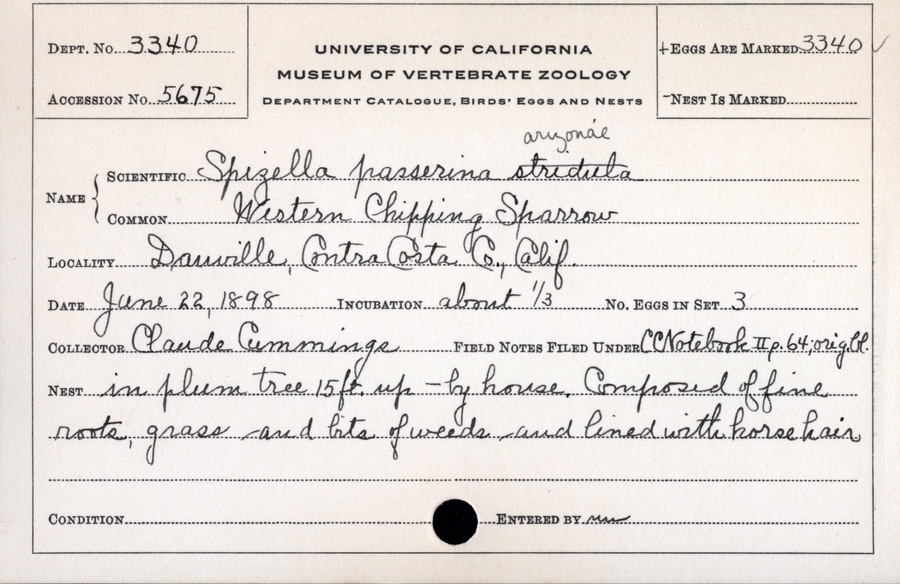 Dept. No. 3340
UNIVERSITY OF CALIFORNIA
MUSEUM OF VERTEBRATE ZOOLOGY
Department Catalogue, Birds' Eggs and Nests
Accession No. 5675
+Eggs Are Marked 3340 ✓
-Nest Is Marked
arizonae
Name { Scientific Spizella passerina stridula
Common Western Chipping Sparrow
Locality Danville, Contra Costa Co., Calif.
Date June 22, 1898 Incubation about 1/3 No. Eggs in Set 3
Collector Claude Cummings Field Notes Filed Under CC Notebook II p. 64; orig. bl.
Nest in plum tree 15 ft. up - by house. Composed of fine
roots, grass and bits of weeds and lined with horse hair
Condition Entered by